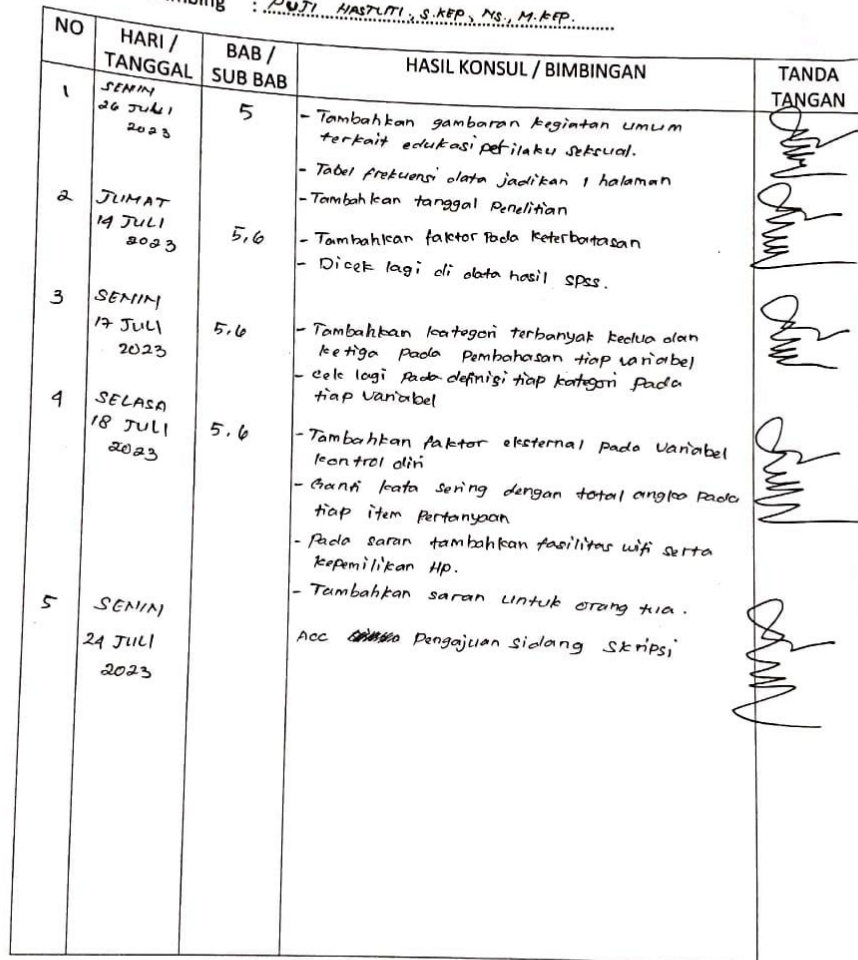 : PUJI HASTUTI, S.KEP, NS., M.KEP.
NO
HARI / TANGGAL
BAB / SUB BAB
HASIL KONSUL / BIMBINGAN
TANDA TANGAN
1
SENIN
26 JULI
2023
5
- Tambahkan gambaran kegiatan umum
terkait edukasi perilaku seksual.
- Tabel frekuensi data jadikan 1 halaman
- Tambahkan tanggal Penelitian
2
JUMAT
14 JULI
2023
5,6
- Tambahkan faktor Pada Keterbatasan
- Dicek lagi di data hasil SPSS.
3
SENIN
17 JULI
2023
5,6
- Tambahkan kategori terbanyak kedua dan
ketiga pada Pembahasan tiap variabel
- cek lagi Pada definisi tiap kategori Pada
tiap Variabel
4
SELASA
18 JULI
2023
5,6
- Tambahkan faktor eksternal pada Variabel
kontrol diri
- Ganti kata sering dengan total angka Pada
tiap item Pertanyaan
- Pada saran tambahkan fasilitas wifi serta
kepemilikan Hp.
- Tambahkan saran untuk orang tua.
5
SENIN
24 JULI
2023
Acc Pengajuan Sidang Skripsi